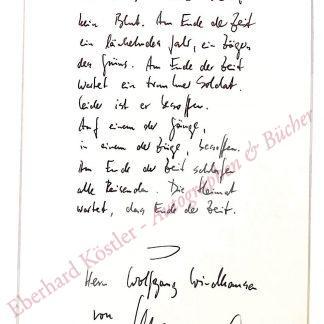 kein Blut. Am Ende der Zeit
ein lächelndes Jahr, ein Zögern
des Grüns. Am Ende der Zeit
wartet ein Soldat.
Leider ist er besoffen.
Auf einem der Gänge,
in einem der Züge, besoffen.
Am Ende der Zeit schlafen
alle Reisenden. Die Heimat
wartet, das Ende der Zeit.
Herrn Wolfgang Windhausen
von
Eberhard Köstler - Autographen & Bücher